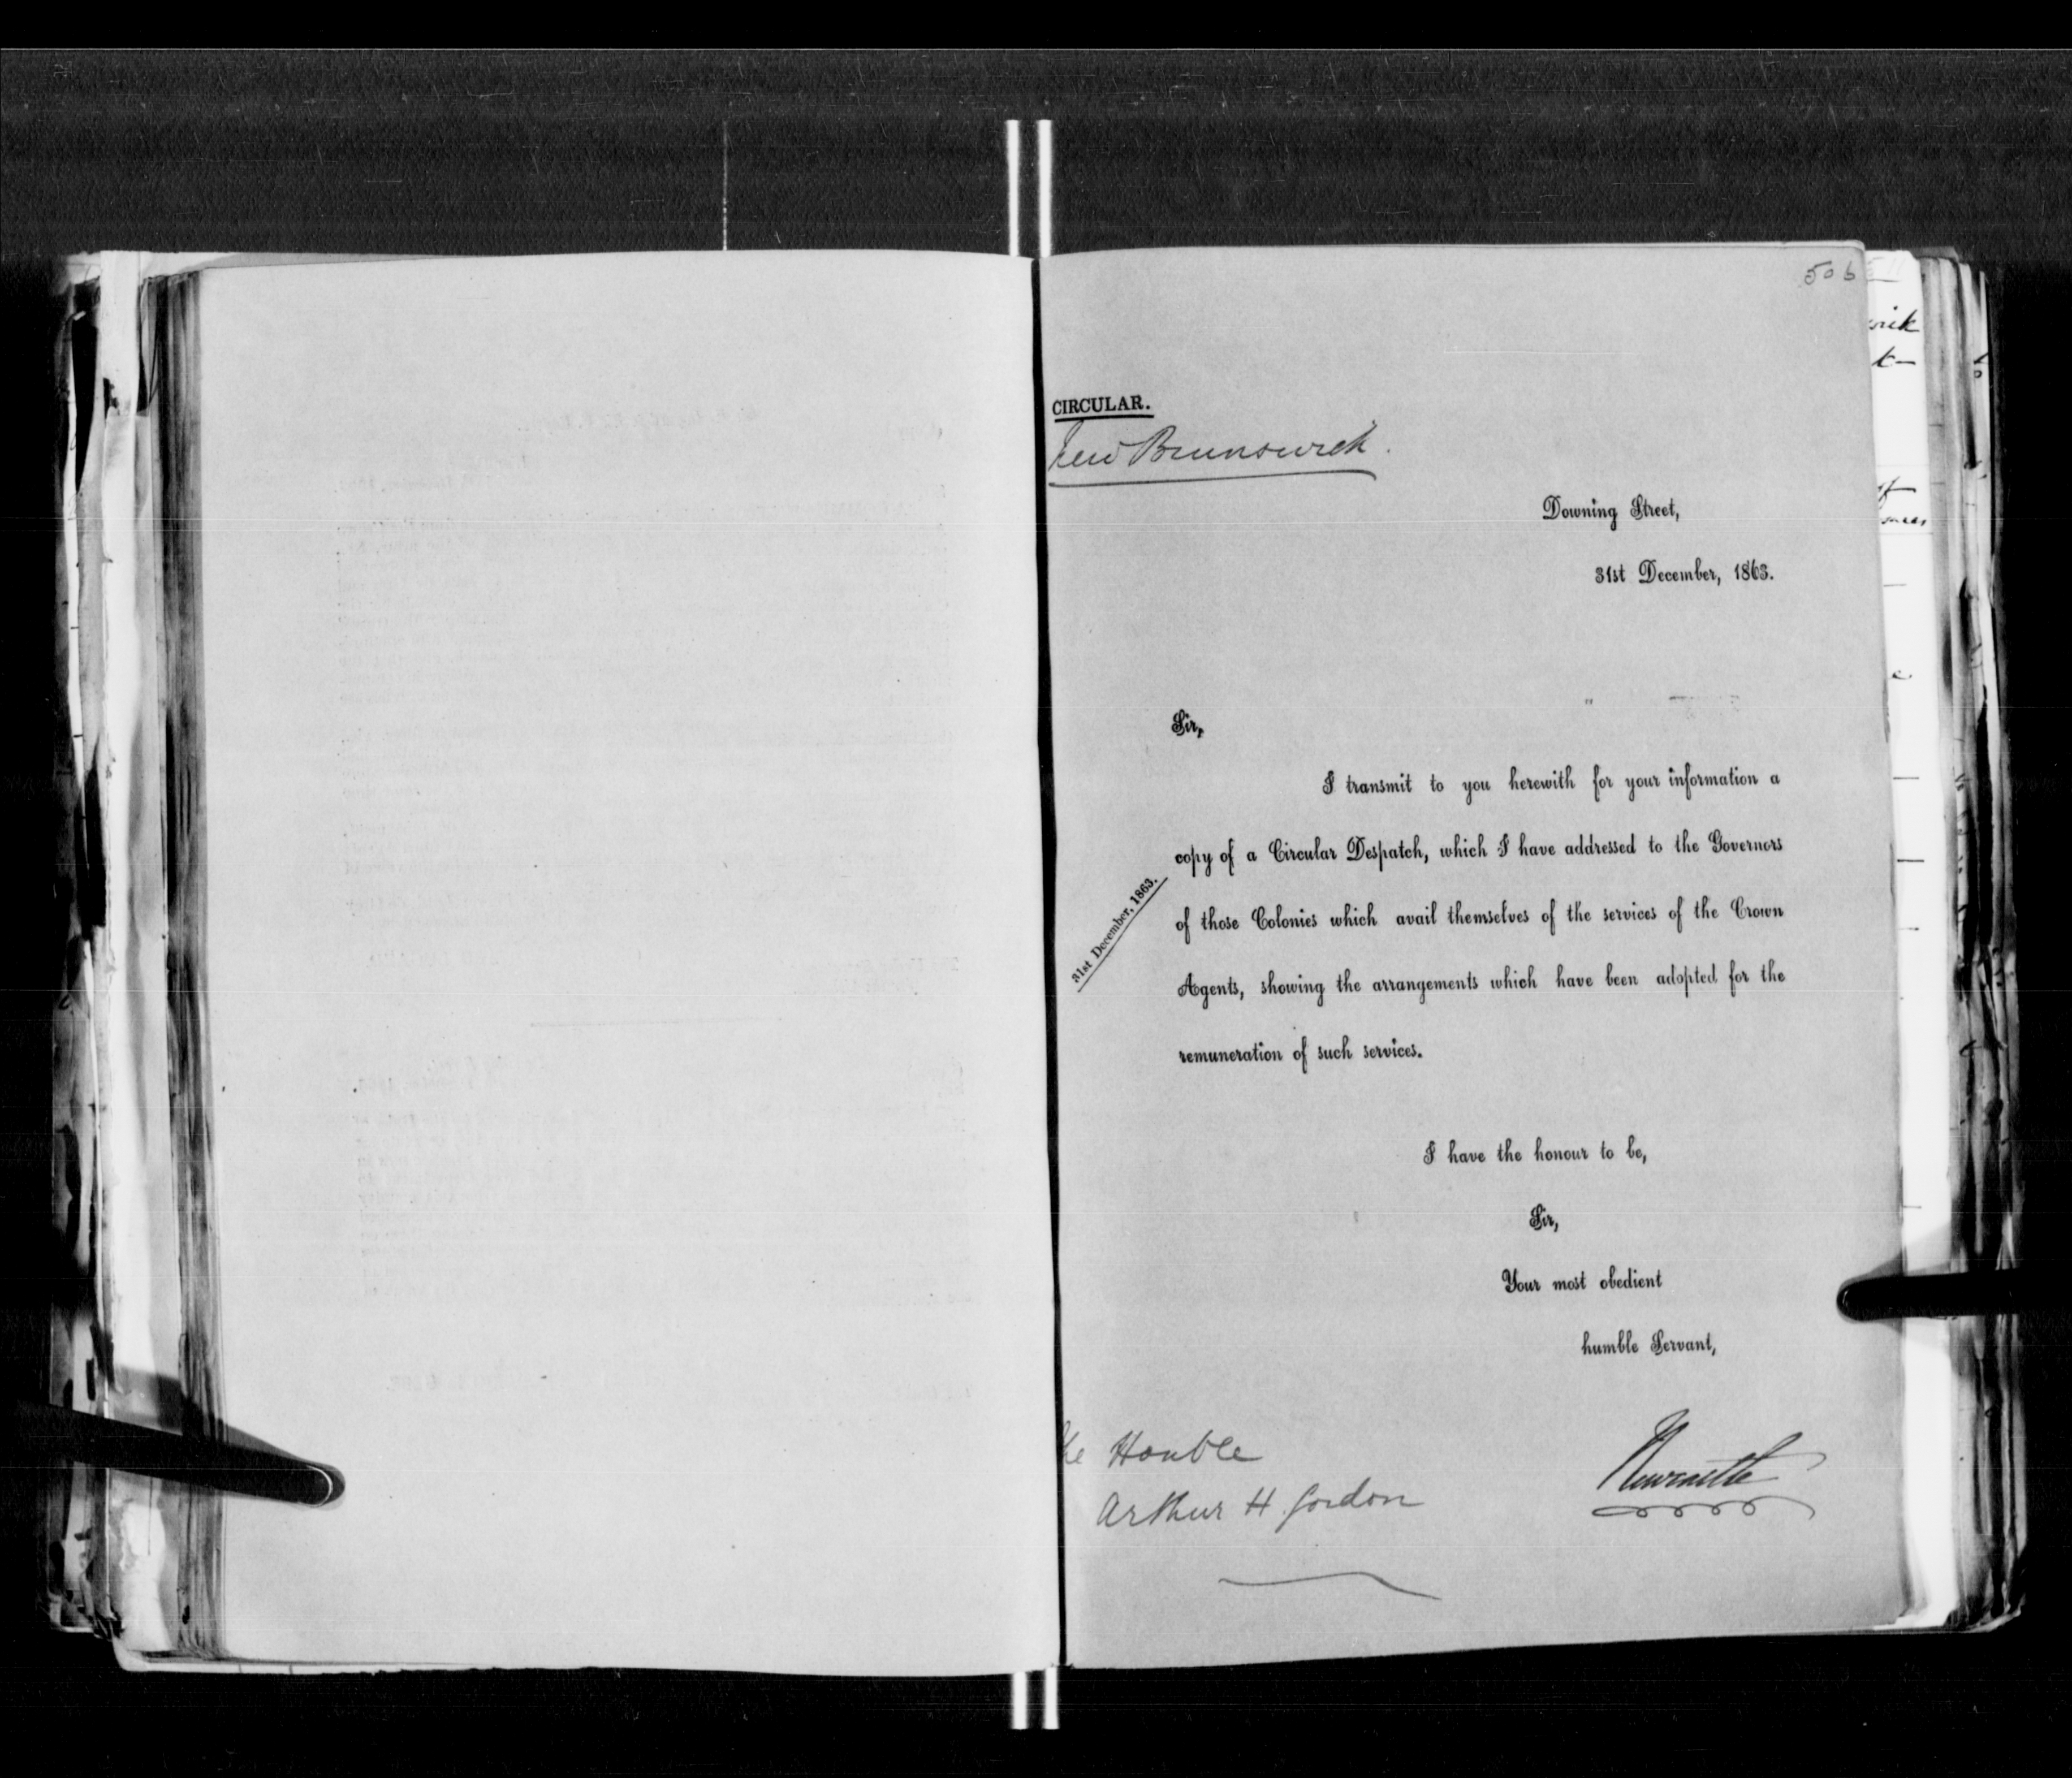 506
CIRCULAR.
New Brunswick.
Downing Street,
31st December, 1863.
Sir,
I transmit to you herewith for your information a
copy of a Circular Despatch, which I have addressed to the Governors
31st December, 1863.
of those Colonies which avail themselves of the services of the Crown
Agents, showing the arrangements which have been adopted for the
remuneration of such services.
I have the honour to be,
Sir,
Your most obedient
humble Servant,
Newcastle
he Honble
Arthur H. Gordon